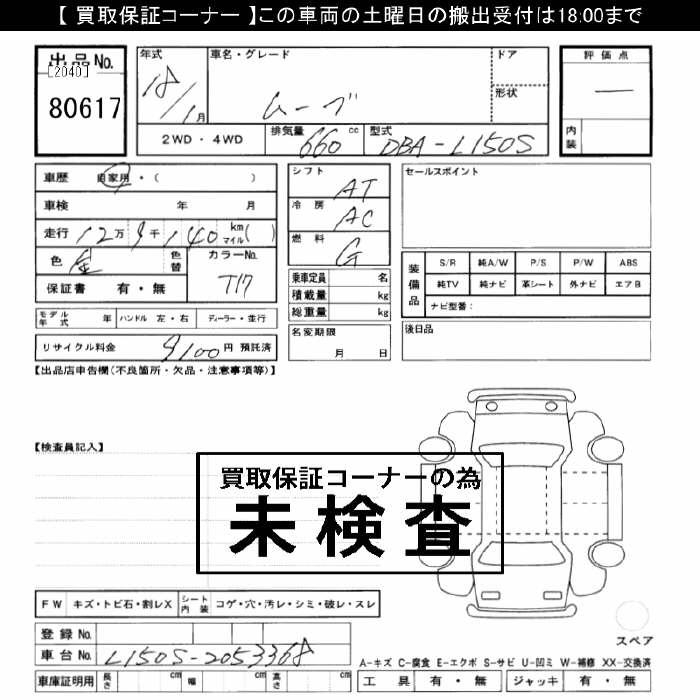 【 買取保証コーナー 】この車両の土曜日の搬出受付は18:00まで
出品No.
[2040]
80617
年式
18/1月
車名・グレード
ムーブ
ドア
形状
評価点
—
内装
2WD ・ 4WD
排気量 660 cc
型式 DBA-L150S
車歴 自家用・( )
車検 年 月
走行 12万9千140 km マイル( )
色 金 色替
カラーNo. T17
保証書 有・無
モデル年式 年 ハンドル 左・右 ディーラー・並行
リサイクル料金 9100円 預託済
シフト AT
冷房 AC
燃料 G
乗車定員 名
積載量 kg
総重量 kg
名変期限
月 日
セールスポイント
装備品
S/R 純A/W P/S P/W ABS
純TV 純ナビ 革シート 外ナビ エアB
ナビ型番:
後日品
【出品店申告欄(不良箇所・欠品・注意事項等)】
【検査員記入】
買取保証コーナーの為
未検査
FW キズ・トビ石・割レX シート内装 コゲ・穴・汚レ・シミ・破レ・スレ
登録No.
車台No. L150S-2053368
車庫証明用 長さ cm 幅 cm 高さ cm
スペア
A-キズ C-腐食 E-エクボ S-サビ U-凹ミ W-補修 XX-交換済
工具 有・無 ジャッキ 有・無